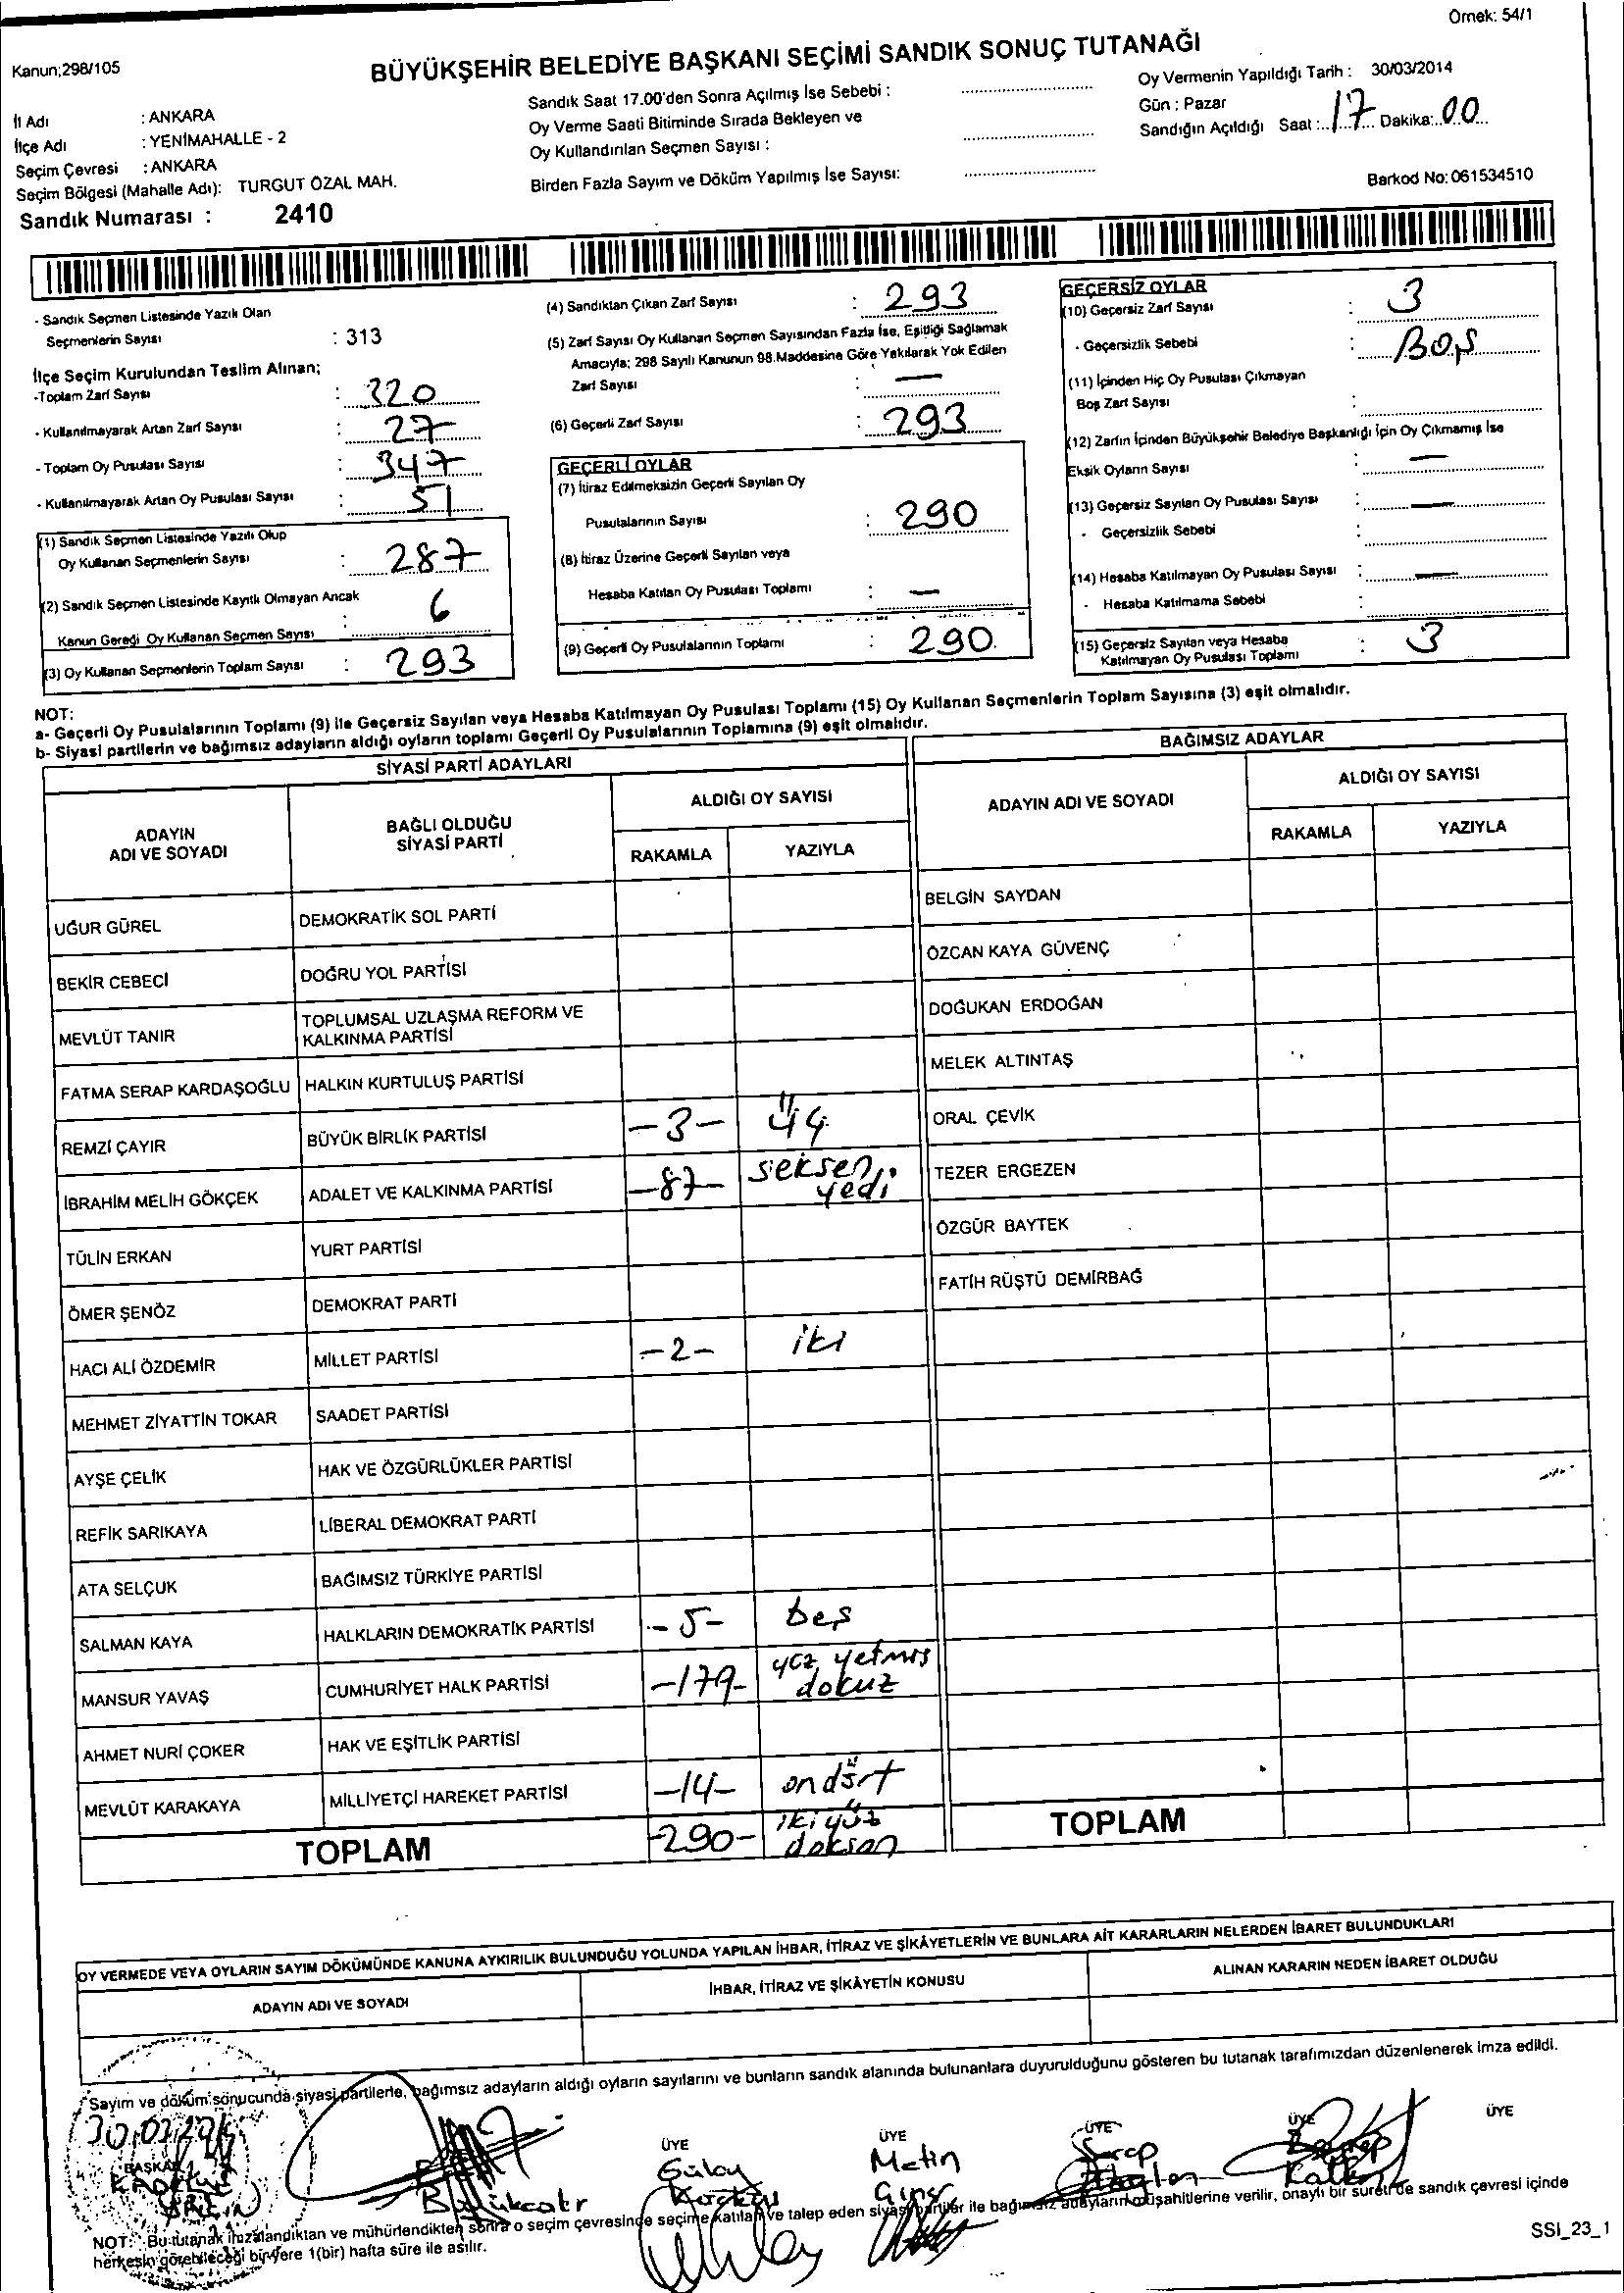 Örnek: 54/1
Kanun;298/105
BÜYÜKŞEHİR BELEDİYE BAŞKANI SEÇİMİ SANDIK SONUÇ TUTANAĞI
İl Adı : ANKARA
İlçe Adı : YENİMAHALLE - 2
Seçim Çevresi : ANKARA
Seçim Bölgesi (Mahalle Adı): TURGUT ÖZAL MAH.
Sandık Numarası : 2410
Sandık Saat 17.00'den Sonra Açılmış İse Sebebi :
Oy Verme Saati Bitiminde Sırada Bekleyen ve
Oy Kullandırılan Seçmen Sayısı :
Birden Fazla Sayım ve Döküm Yapılmış İse Sayısı:
Oy Vermenin Yapıldığı Tarih : 30/03/2014
Gün : Pazar
Sandığın Açıldığı Saat : 17 Dakika: 00
Barkod No: 061534510
- Sandık Seçmen Listesinde Yazılı Olan
Seçmenlerin Sayısı : 313
İlçe Seçim Kurulundan Teslim Alınan;
-Toplam Zarf Sayısı : 320
- Kullanılmayarak Artan Zarf Sayısı : 27
- Toplam Oy Pusulası Sayısı : 347
- Kullanılmayarak Artan Oy Pusulası Sayısı : 51
(1) Sandık Seçmen Listesinde Yazılı Olup
Oy Kullanan Seçmenlerin Sayısı : 287
(2) Sandık Seçmen Listesinde Kayıtlı Olmayan Ancak
Kanun Gereği Oy Kullanan Seçmen Sayısı : 6
(3) Oy Kullanan Seçmenlerin Toplam Sayısı : 293
(4) Sandıktan Çıkan Zarf Sayısı : 293
(5) Zarf Sayısı Oy Kullanan Seçmen Sayısından Fazla İse, Eşitliği Sağlamak
Amacıyla; 298 Sayılı Kanunun 98.Maddesine Göre Yakılarak Yok Edilen
Zarf Sayısı : —
(6) Geçerli Zarf Sayısı : 293
GEÇERLİ OYLAR
(7) İtiraz Edilmeksizin Geçerli Sayılan Oy
Pusulalarının Sayısı : 290
(8) İtiraz Üzerine Geçerli Sayılan veya
Hesaba Katılan Oy Pusulası Toplamı : —
(9) Geçerli Oy Pusulalarının Toplamı : 290
GEÇERSİZ OYLAR
(10) Geçersiz Zarf Sayısı : 3
- Geçersizlik Sebebi : BOŞ
(11) İçinden Hiç Oy Pusulası Çıkmayan
Boş Zarf Sayısı :
(12) Zarfın İçinden Büyükşehir Belediye Başkanlığı İçin Oy Çıkmamış İse
Eksik Oyların Sayısı : —
(13) Geçersiz Sayılan Oy Pusulası Sayısı : —
- Geçersizlik Sebebi :
(14) Hesaba Katılmayan Oy Pusulası Sayısı : —
- Hesaba Katılmama Sebebi :
(15) Geçersiz Sayılan veya Hesaba
Katılmayan Oy Pusulası Toplamı : 3
NOT:
a- Geçerli Oy Pusulalarının Toplamı (9) ile Geçersiz Sayılan veya Hesaba Katılmayan Oy Pusulası Toplamı (15) Oy Kullanan Seçmenlerin Toplam Sayısına (3) eşit olmalıdır.
b- Siyasi partilerin ve bağımsız adayların aldığı oyların toplamı Geçerli Oy Pusulalarının Toplamına (9) eşit olmalıdır.
SİYASİ PARTİ ADAYLARI
ADAYIN ADI VE SOYADI
BAĞLI OLDUĞU SİYASİ PARTİ
ALDIĞI OY SAYISI
RAKAMLA YAZIYLA
UĞUR GÜREL DEMOKRATİK SOL PARTİ
BEKİR CEBECİ DOĞRU YOL PARTİSİ
MEVLÜT TANIR TOPLUMSAL UZLAŞMA REFORM VE KALKINMA PARTİSİ
FATMA SERAP KARDAŞOĞLU HALKIN KURTULUŞ PARTİSİ
REMZİ ÇAYIR BÜYÜK BİRLİK PARTİSİ -3- üç
İBRAHİM MELİH GÖKÇEK ADALET VE KALKINMA PARTİSİ -87- seksen yedi
TÜLİN ERKAN YURT PARTİSİ
ÖMER ŞENÖZ DEMOKRAT PARTİ
HACI ALİ ÖZDEMİR MİLLET PARTİSİ -2- iki
MEHMET ZİYATTİN TOKAR SAADET PARTİSİ
AYŞE ÇELİK HAK VE ÖZGÜRLÜKLER PARTİSİ
REFİK SARIKAYA LİBERAL DEMOKRAT PARTİ
ATA SELÇUK BAĞIMSIZ TÜRKİYE PARTİSİ
SALMAN KAYA HALKLARIN DEMOKRATİK PARTİSİ -5- beş
MANSUR YAVAŞ CUMHURİYET HALK PARTİSİ -179- yüz yetmiş dokuz
AHMET NURİ ÇOKER HAK VE EŞİTLİK PARTİSİ
MEVLÜT KARAKAYA MİLLİYETÇİ HAREKET PARTİSİ -14- ondört
TOPLAM -290- ikiyüz doksan
BAĞIMSIZ ADAYLAR
ADAYIN ADI VE SOYADI
ALDIĞI OY SAYISI
RAKAMLA YAZIYLA
BELGİN SAYDAN
ÖZCAN KAYA GÜVENÇ
DOĞUKAN ERDOĞAN
MELEK ALTINTAŞ
ORAL ÇEVİK
TEZER ERGEZEN
ÖZGÜR BAYTEK
FATİH RÜŞTÜ DEMİRBAĞ
TOPLAM
OY VERMEDE VEYA OYLARIN SAYIM DÖKÜMÜNDE KANUNA AYKIRILIK BULUNDUĞU YOLUNDA YAPILAN İHBAR, İTİRAZ VE ŞİKÂYETLERİN VE BUNLARA AİT KARARLARIN NELERDEN İBARET BULUNDUKLARI
ADAYIN ADI VE SOYADI
İHBAR, İTİRAZ VE ŞİKÂYETİN KONUSU
ALINAN KARARIN NEDEN İBARET OLDUĞU
Sayım ve döküm sonucunda siyasi partilerle, bağımsız adayların aldığı oyların sayılarını ve bunların sandık alanında bulunanlara duyurulduğunu gösteren bu tutanak tarafımızdan düzenlenerek imza edildi.
BAŞKAN
ÜYE ÜYE ÜYE ÜYE ÜYE
Gülay
Metin
Serap
NOT: Bu tutanak imzalandıktan ve mühürlendikten sonra o seçim çevresinde seçime katılan ve talep eden siyasi partiler ile bağımsız adayların müşahitlerine verilir, onaylı bir sureti de sandık çevresi içinde
herkesin görebileceği bir yere 1(bir) hafta süre ile asılır.
SSI_23_1